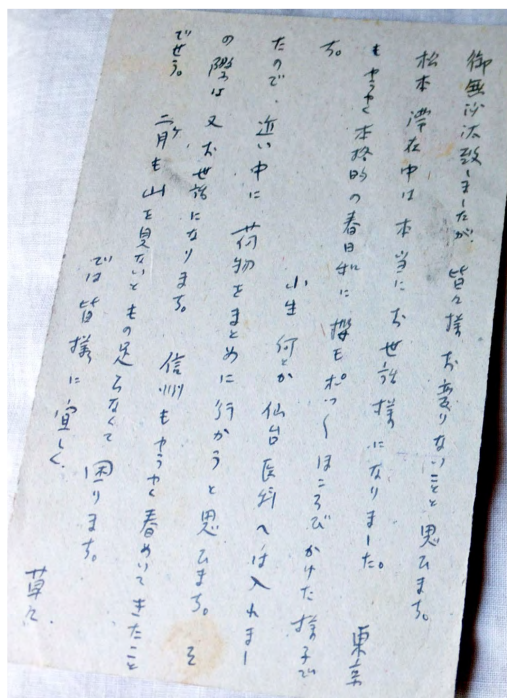 御無沙汰致しましたが、皆々様お変りないことと思ひます。
松本滞在中は本当にお世話様になりました。　東京
もやうやく本格的の春日和に櫻もポツ〱ほころびかけた様子で
す。　小生何とか仙台医科へは入れまし
たので、近い中に荷物をまとめに行かうと思ひます。　そ
の際は又お世話になります。　信州もやうやく春めいてきたこと
でせう。　二ヶ月も山を見ないともの足らなくて困ります。
では皆様に宜しく、
草々